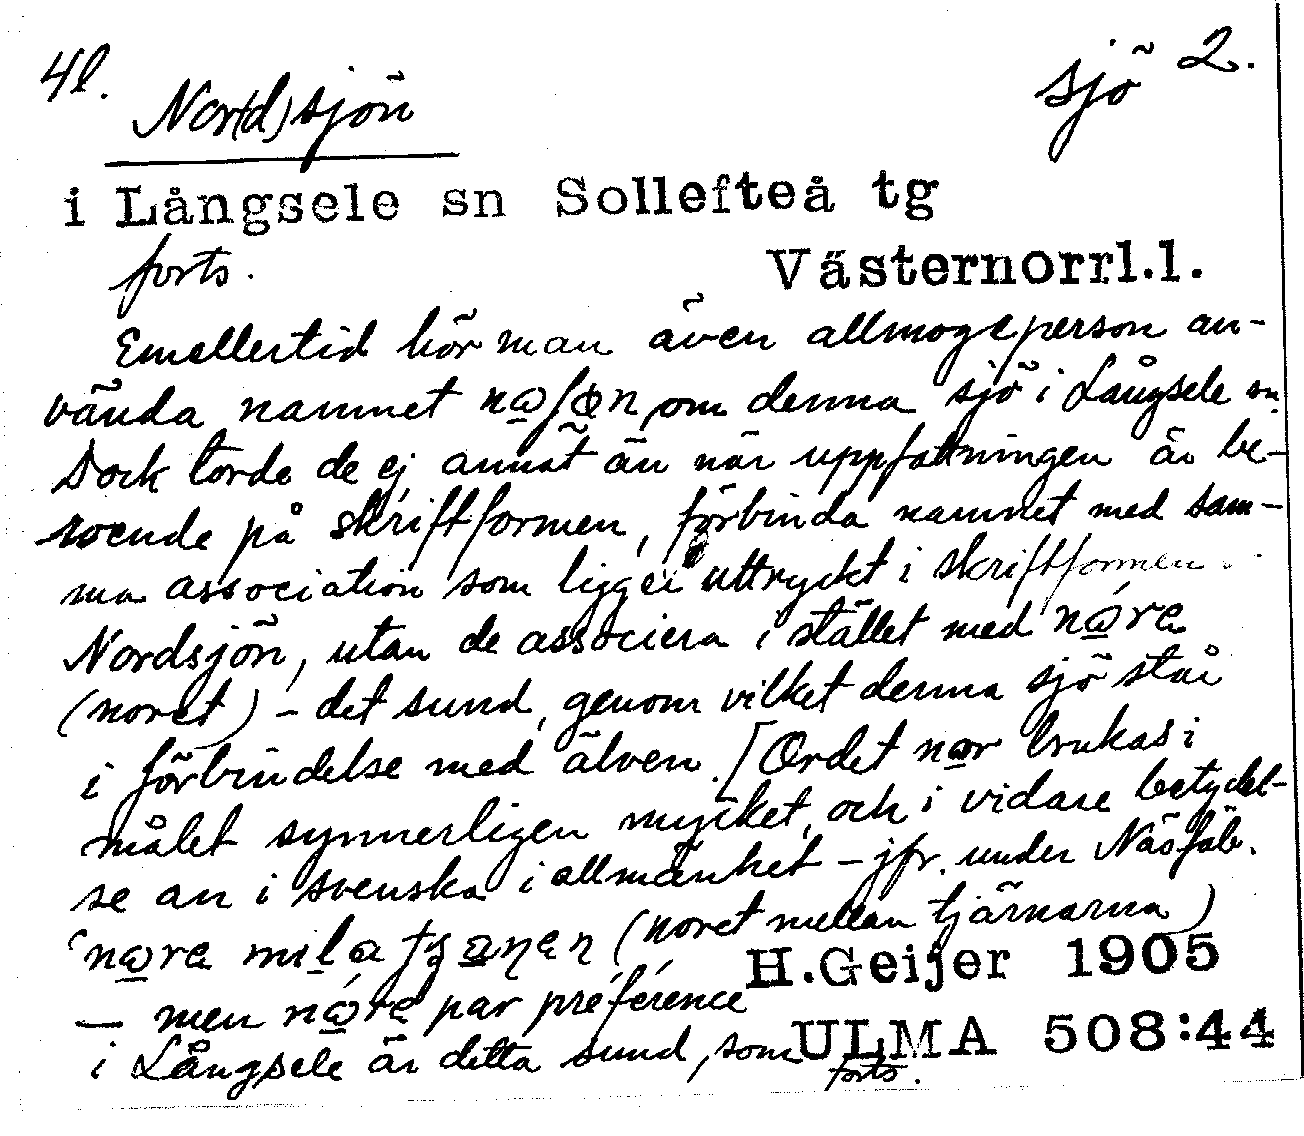 4l.
Nor(d)sjön
sjö 2.
i Långsele sn Sollefteå tg
forts.
Västernorrl.l.
Emellertid hör man även allmogeperson an-
vända namnet om denna sjö i Långsele sn.
Dock torde de ej, annat än när uppfattningen är be-
roende på skriftformen, förbinda namnet med sam-
ma association som ligger uttryckt i skriftformen
Nordsjön, utan de associera i stället med nɷre
(noret) – det sund, genom vilket denna sjö står
i förbindelse med älven. [Ordet nɷr brukas i
målet synnerligen mycket, och i vidare betydel-
se än i svenska i allmänhet – jfr. under Näsfäb.
(noret mellan tjärnarna)
H.Geijer 1905
— men nɷre par préférence
i Långsele är detta sund, som
ULMA 508:44
forts.